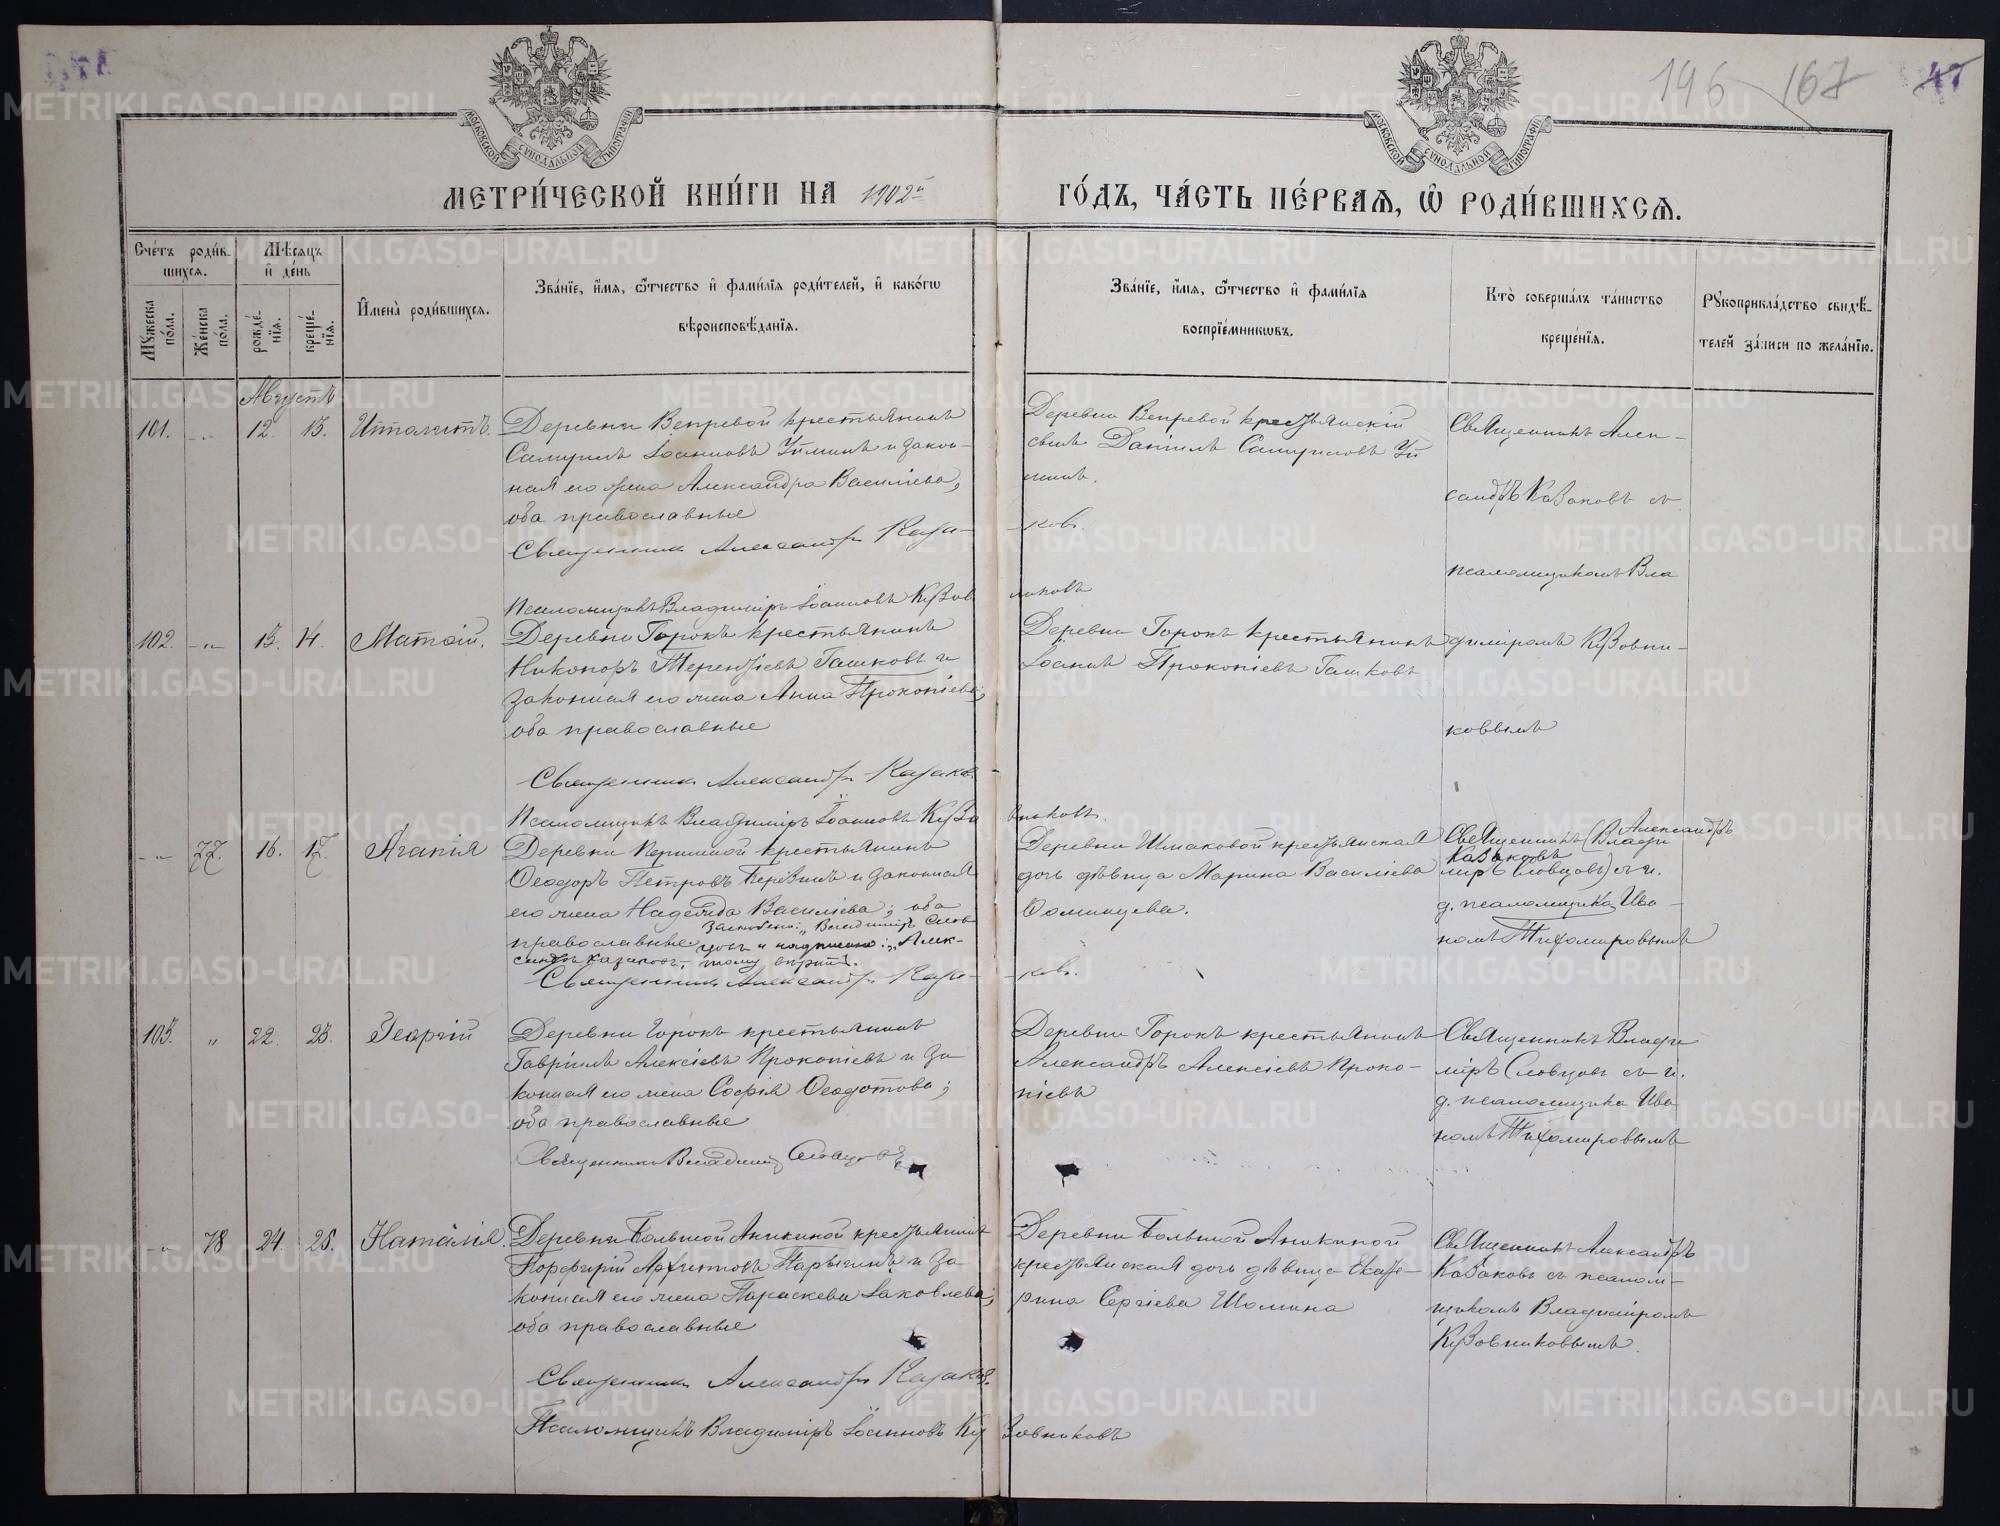 196 167 47
МОСКОВСКОЙ СѴНОДАЛЬНОЙ ТИПОГРАФІИ
МОСКОВСКОЙ СѴНОДАЛЬНОЙ ТИПОГРАФІИ
МЕТРИ́ЧЕСКОЙ КНИ́ГИ НА 1902й ГО́ДЪ, ЧА́СТЬ ПЕ́РВАѦ, Ѽ РОДИ́ВШИХСѦ.
Сче́тъ роди́вшихсѧ.
Мꙋ́жеска по́ла.
Же́нска по́ла.
Мѣ́сѧцъ и҆ де́нь
рожде́нїѧ.
креще́нїѧ.
И҆мена̀ роди́вшихсѧ.
Зва́нїе, и҆́мѧ, ѻ҆́тчество и҆ фами́лїѧ роди́телей, и҆ како́гѡ
вѣроисповѣ́данїѧ.
Зва́нїе, и҆́мѧ, ѻ҆́тчество и҆ фами́лїѧ
воспрїе́мникѡвъ.
Кто̀ соверша́лъ та́инство
креще́нїѧ.
Рꙋкоприкла́дство свидѣ́-
телей за́писи по жела́нїю.
Августъ
101. -„- 12. 13. Ипполитъ.
Деревни Вепревой крестьянинъ
Самуилъ Іоанновъ Уйминъ и закон-
ная его жена Александра Василіева,
оба православные
Священникъ Александръ Каза-
ковъ.
Псаломщикъ Владиміръ Іоанновъ Кузов
никовъ
Деревни Вепревой крестьянскій
сынъ Даніилъ Самуиловъ Уй
минъ.
Священникъ Алек-
сандръ Казаковъ съ
псаломщикомъ Вла
диміромъ Кузовни-
ковымъ
102. -„- 13. 14. Матѳій.
Деревни Горокъ крестьянинъ
Никоноръ Терентіевъ Гашковъ и
законная его жена Анна Прокопіева;
оба православные
Священникъ Александръ Казаковъ
Псаломщикъ Владиміръ Іоанновъ Кузо
вниковъ.
Деревни Горокъ крестьянинъ
Іоаннъ Прокопіевъ Гашковъ
-„- 77. 16. 17. Агапія
Деревни Першиной крестьянинъ
Ѳеодоръ Петровъ Берзинъ и законная
его жена Надежда Василіева; оба
православные
зачеркнено: „Владиміръ Слов
цовъ и надписано: „Алек-
сандръ Казаковъ, тому вѣрить.
Священникъ Александръ Каза-
ковъ.
Деревни Шмаковой крестьянская
дочь дѣвица Марина Василіева
Ѳоминцева.
Священникъ (Влади Александръ
Казаковъ
міръ Словцовъ) съ и.
д. псаломщика Ива-
номъ Тихомировымъ
103. „ 22. 23. Георгій
Деревни Горокъ крестьянинъ
Гавріилъ Алексіевъ Прокопіевъ и за
конная его жена Софія Ѳеодотова;
оба православные
Священникъ Владиміръ Словцовъ
Деревни Горокъ крестьянинъ
Александръ Алексіевъ Проко-
піевъ
Священникъ Влади
міръ Словцовъ съ и.
д. псаломщика Ива
номъ Тихомировымъ
-„- 78 24. 25. Наталія.
Деревни Большой Аникиной крестьянинъ
Порфирій Пaрыгинъ и за
конная его жена Параскева Іаковлева;
оба православные
Священникъ Александръ Казаковъ.
Псаломщикъ Владиміръ Іоанновъ Ку
зовниковъ
Деревни Большой Аникиной
крестьянская дочь дѣвица Екате-
рина Сергіева Шомина
Священникъ Александръ
Казаковъ съ псалом-
щикомъ Владиміромъ
Кузовниковымъ.
METRIKI.GASO-URAL.RU